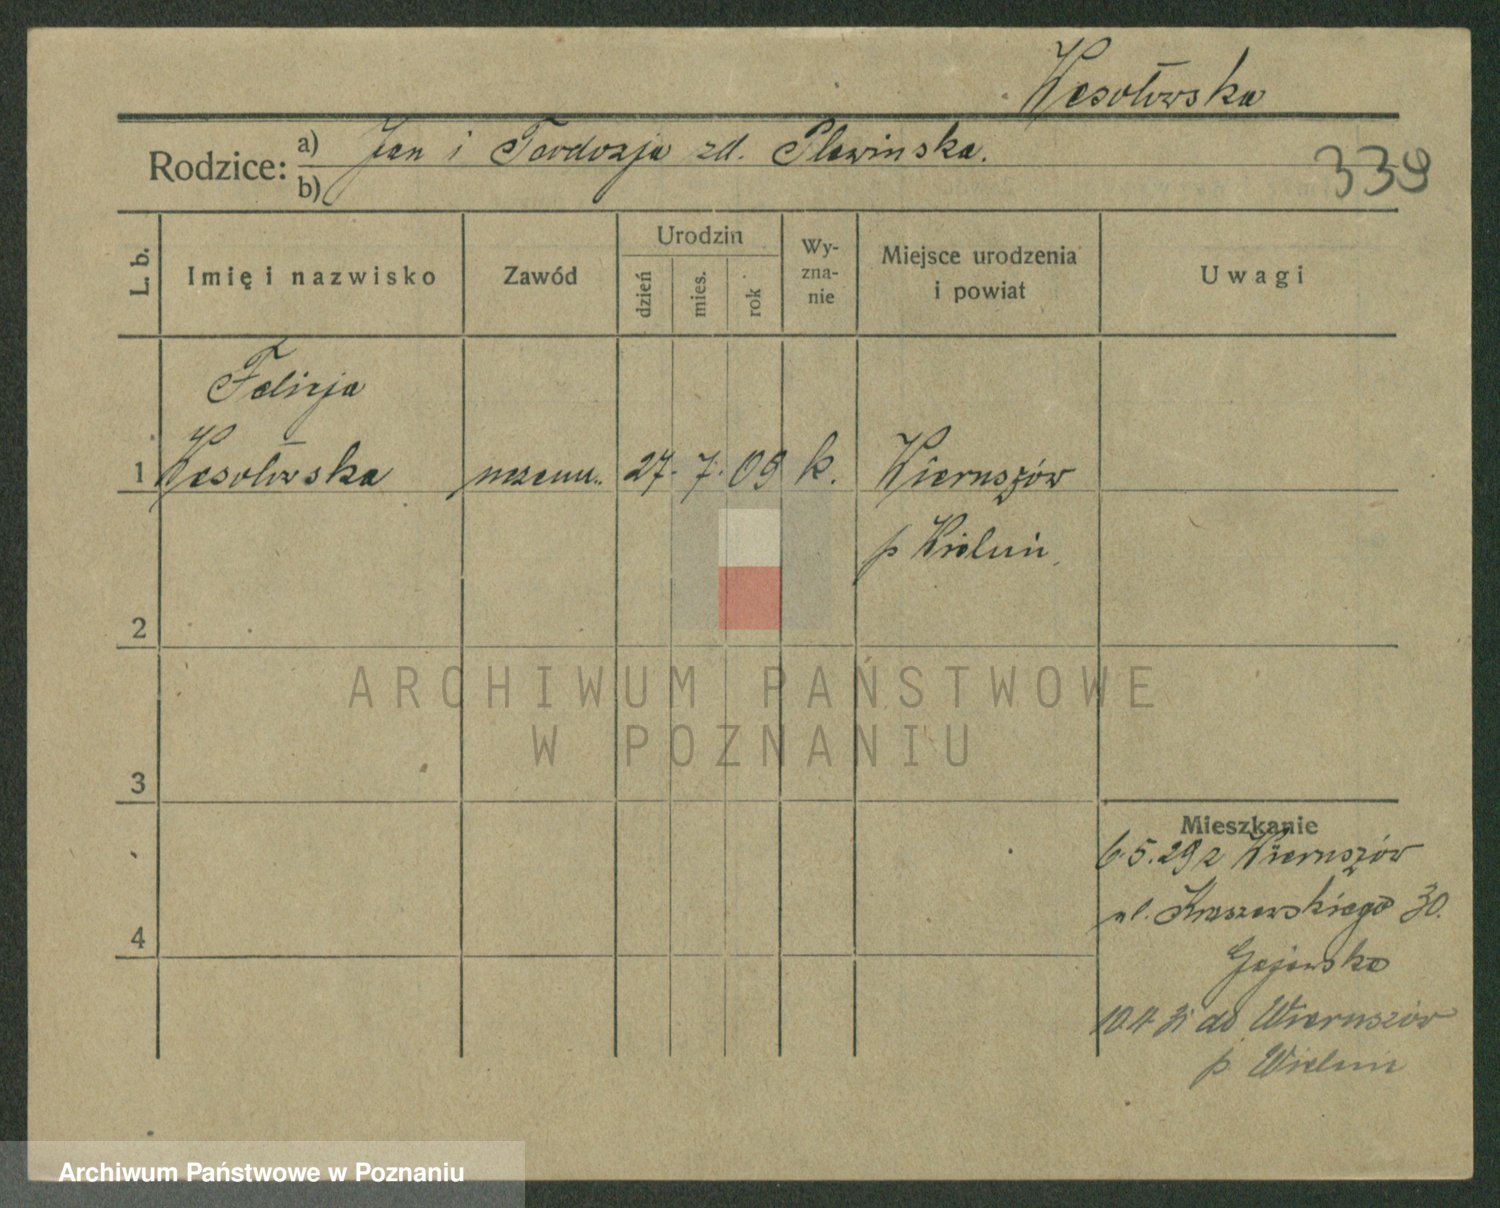 Wesołowska
Rodzice: a) Jan i Teodozja zd. Plewinska.
b)
339
L. b. Imię i nazwisko Zawód Urodzin dzień mies. rok Wy-zna-nie Miejsce urodzenia i powiat Uwagi
Felicja
1 Wesołowska 27. 7. 09 k. Wieruszów
p Wieluń
2
ARCHIWUM PAŃSTWOWE
W POZNANIU
3
Mieszkanie
6.5.29 z Wieruszów
4 ul. Kraszewskiego 30.
Gajewska
10.4 31 do Wieruszów
p. Wieluń
Archiwum Państwowe w Poznaniu